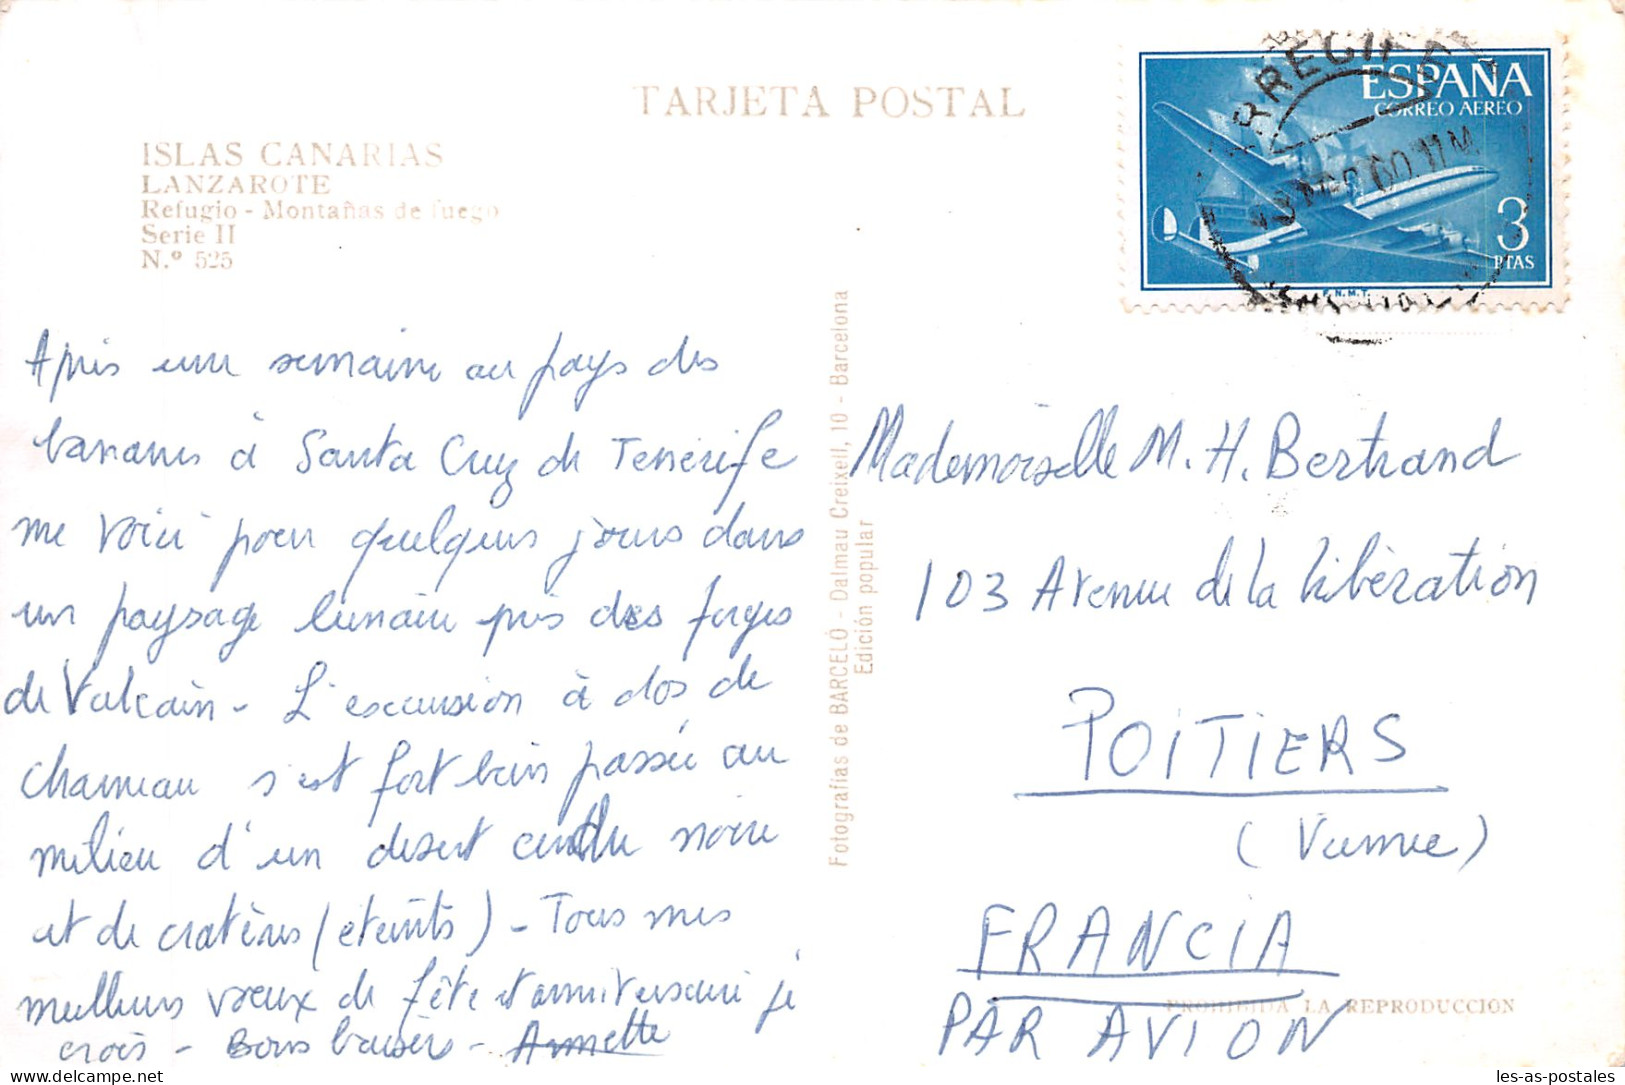 TARJETA POSTAL
ISLAS CANARIAS
LANZAROTE
Refugio - Montañas de fuego
Serie II
N.º 525
ESPAÑA
CORREO AEREO
3
PTAS
F.N.M.T.
ARRECIFE
60.11M
Après une semaine au pays des
bananes à Santa Cruz de Tenerife
me voici pour quelques jours dans
un paysage lunaire près des forges
de Vulcain - L'excursion à dos de
chameau s'est fort bien passée au
milieu d'un désert cendre noire
et de cratères (éteints) - Tous mes
meilleurs vœux de fête et anniversaire je
crois - Bons baisers - Annette
Fotografías de BARCELÓ - Dalmau Creixell, 10 - Barcelona
Edición popular
Mademoiselle M. H. Bertrand
103 Avenue de la libération
POITIERS
(Vienne)
FRANCIA
PROHIBIDA LA REPRODUCCION
PAR AVION
les-as-postales